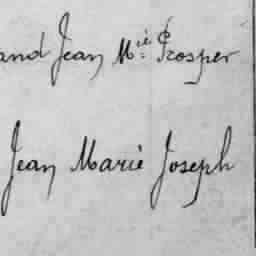 and Jean M.ie Prosper
Jean Marie Joseph